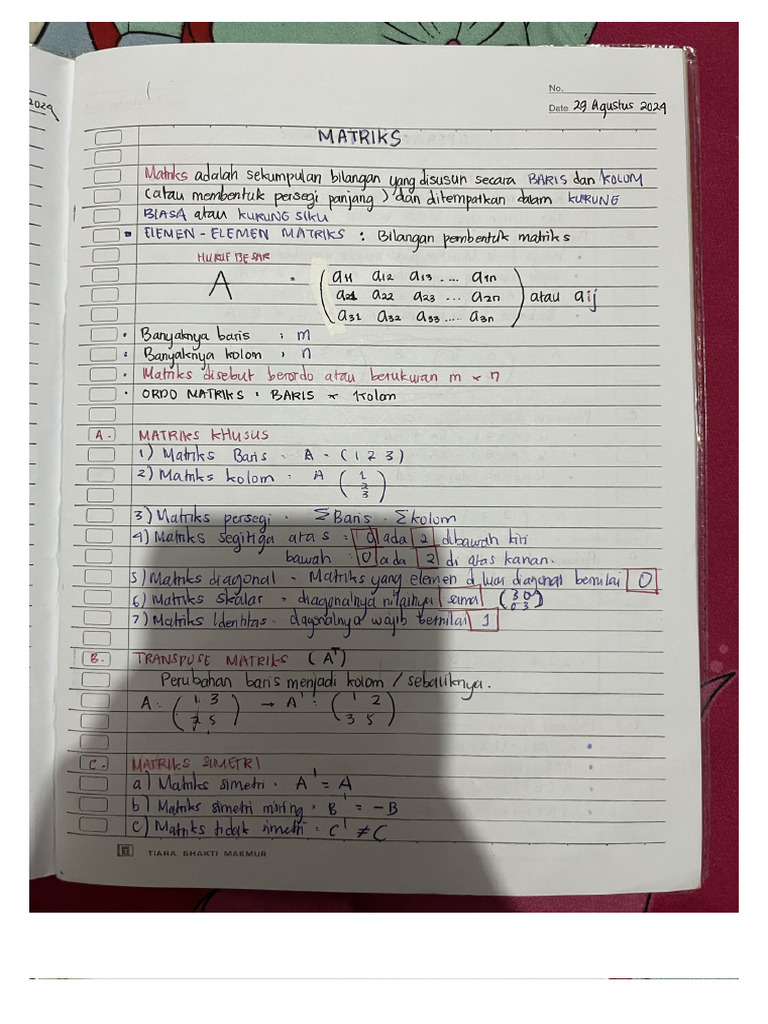 2024
No.
Date 29 Agustus 2024
MATRIKS
Matriks adalah sekumpulan bilangan yang disusun secara BARIS dan KOLOM
(atau membentuk persegi panjang) dan ditempatkan dalam KURUNG
BIASA atau KURUNG SIKU
ELEMEN - ELEMEN MATRIKS : Bilangan pembentuk matriks
HURUF BESAR
A = ( a11 a12 a13 .... a1n
a21 a22 a23 ... a2n ) atau aij
a31 a32 a33 .... a3n
• Banyaknya baris : m
• Banyaknya kolom : n
• Matriks disebut berordo atau berukuran m × n
• ORDO MATRIKS : BARIS × Kolom
A. MATRIKS KHUSUS
1) Matriks Baris = A = ( 1 2 3 )
2) Matriks kolom : A ( 1
2
3 )
3) Matriks persegi = ΣBaris = Σkolom
4) Matriks segitiga atas : 0 ada 2 dibawah kiri
bawah : 0 ada 2 di atas kanan.
5) Matriks diagonal = Matriks yang elemen d luar diagonal bernilai 0
6) Matriks skalar = diagonalnya nilainya sama ( 3 0
0 3 )
7) Matriks Identitas = diagonalnya wajib bernilai 1
B. TRANSPOSE MATRIKS (Aᵀ)
Perubahan baris menjadi kolom / sebaliknya.
A = ( 1 3
2 5 ) → A' : ( 1 2
3 5 )
C. MATRIKS SIMETRI
a) Matriks simetri = A' = A
b) Matriks simetri miring = B' = -B
c) Matriks tidak simetri = C' ≠ C
TIARA BHAKTI MAKMUR